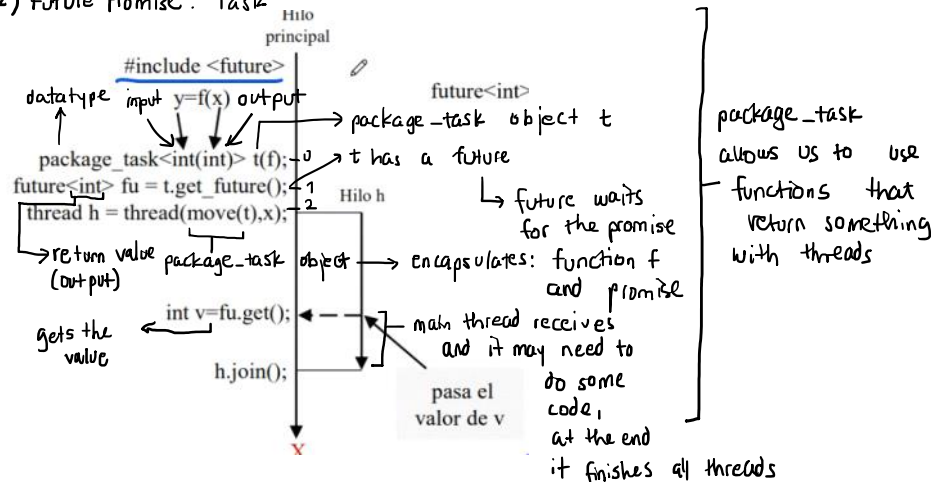 2) Future Promise: Task
Hilo
principal
#include <future>
datatype input y=f(x) output
future<int>
package_task object t
package_task<int(int)> t(f); 0
t has a future
future<int> fu = t.get_future(); 1
Hilo h
thread h = thread(move(t),x); 2
future waits
for the promise
return value
(output)
package_task object
encapsulates: function f
and promise
int v=fu.get();
gets the
value
main thread receives
and it may need to
do some
code,
at the end
it finishes all threads
h.join();
pasa el
valor de v
X
package_task
allows us to use
functions that
return something
with threads